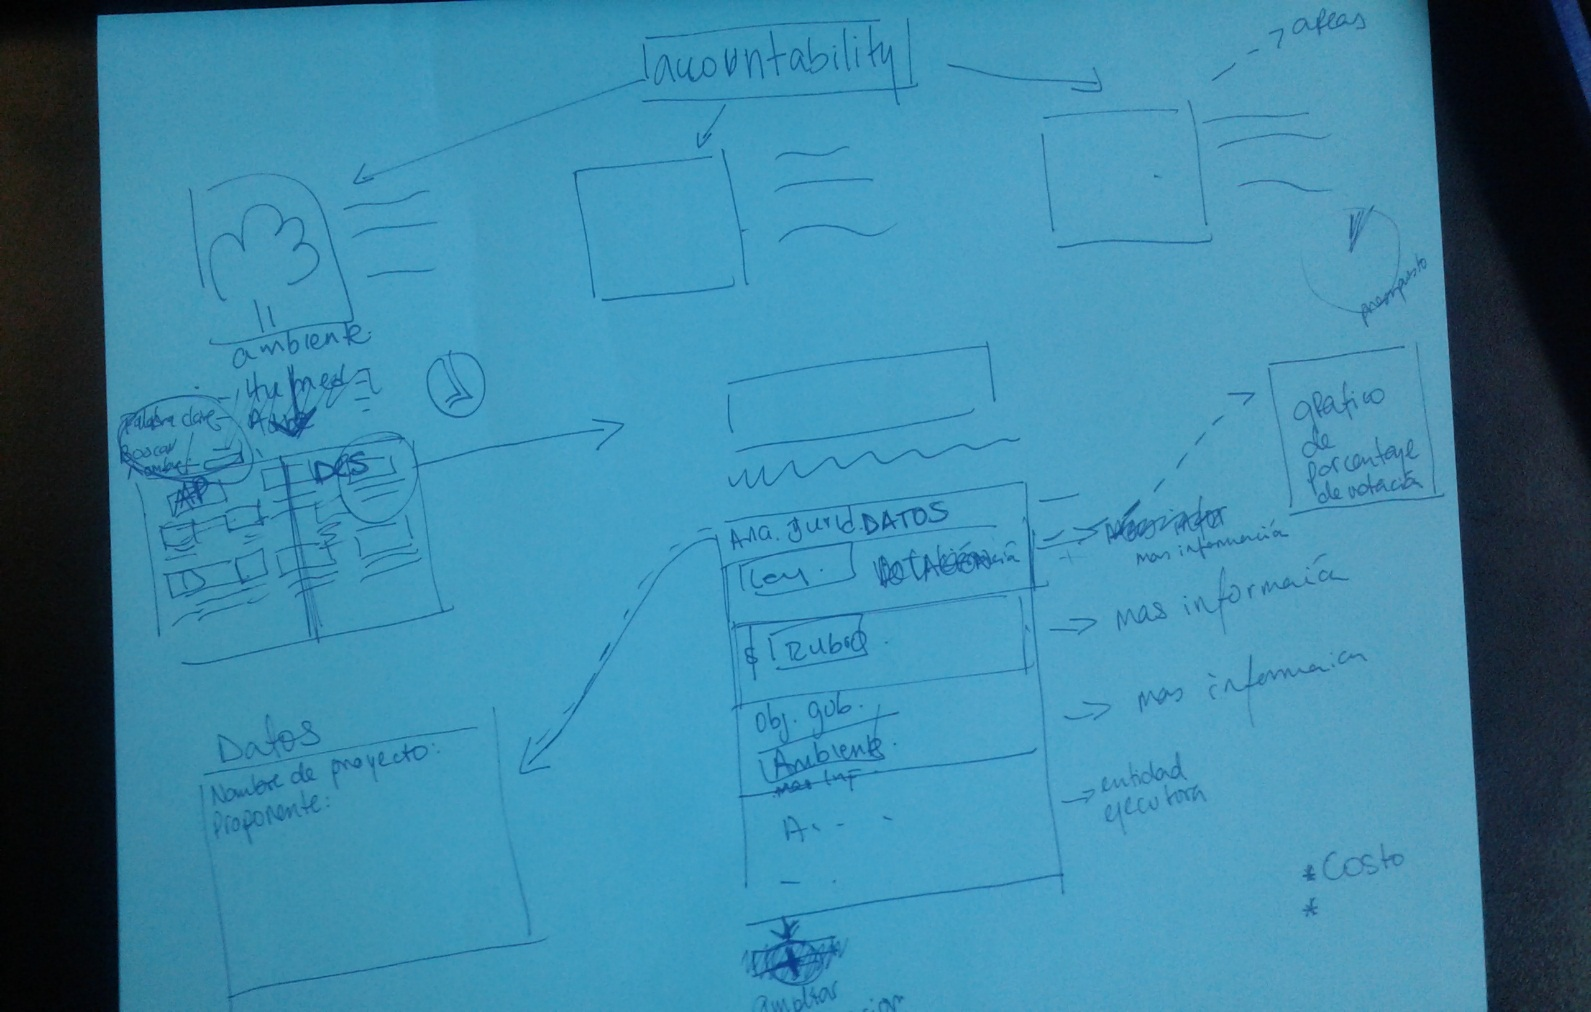 accountability
areas
presupuesto
ambiente.
Palabra clave
Buscar
AP
DES
gráfico
de
porcentaje
de votación
Ana. Juríd DATOS
Ley.
mas información
mas informaión
$ Rubro.
mas informaion
Obj. gub.
Ambiente.
mas inf
entidad
ejecutora
A. - -
Datos
Nombre de proyecto:
Proponente:
* Costo
*
ampliar